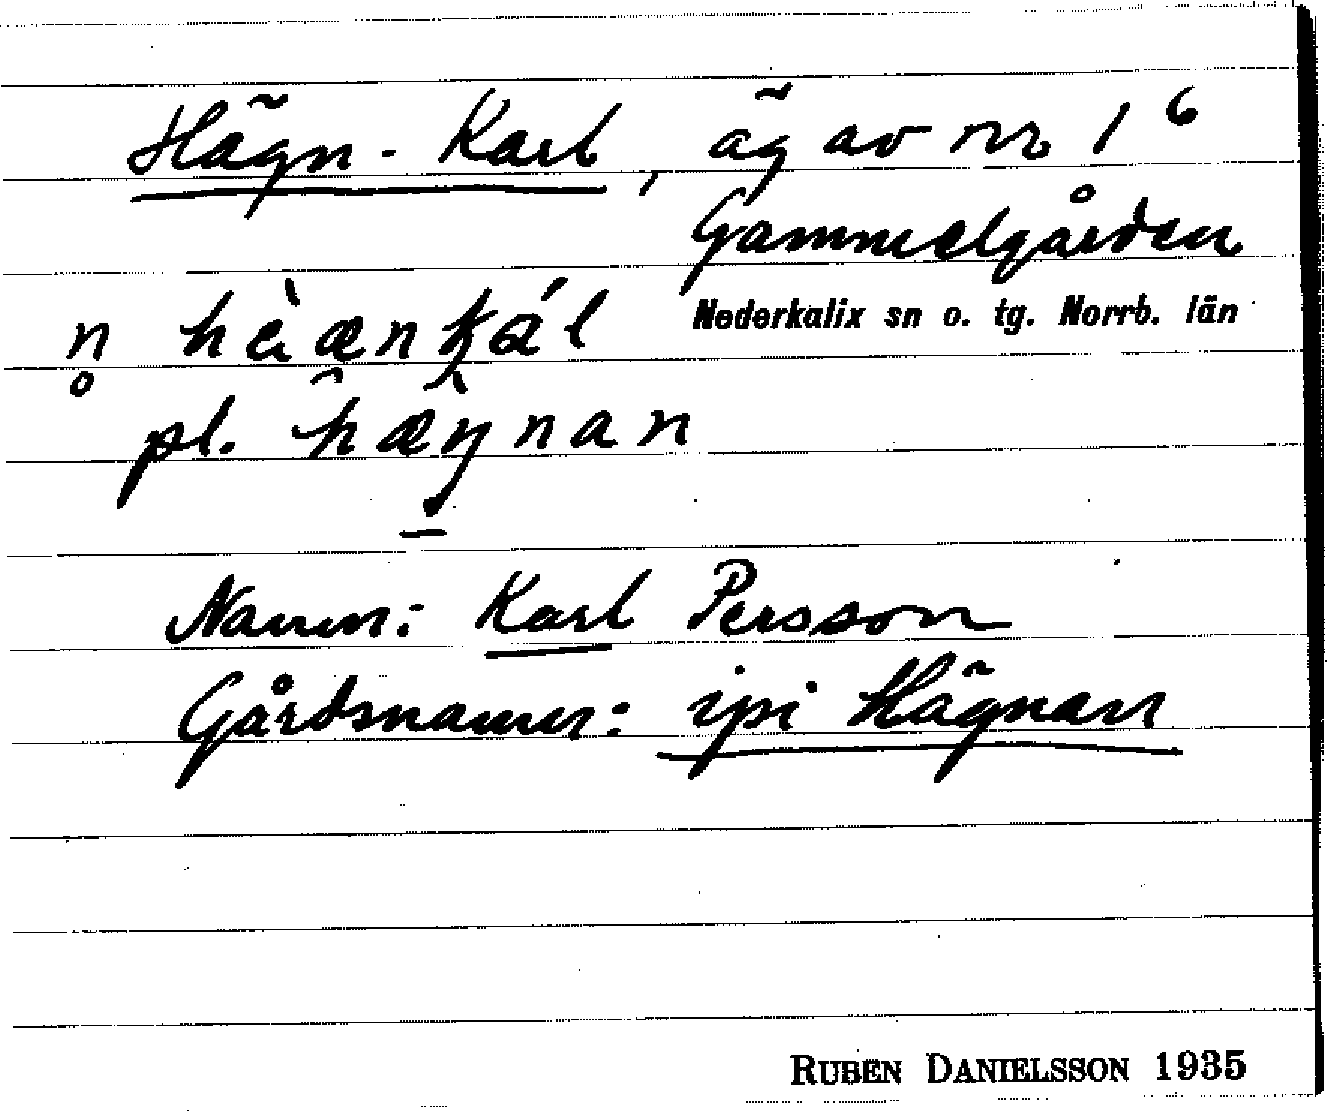 Hägn-Karl, äg av nr 1⁶
Gammelgården
Nederkalix sn o. tg. Norrb. län
n̥ hèænkál
pl. hæŋnan
Namn: Karl Persson
Gårdsnamn: ipi Hägnan
RUBEN DANIELSSON 1935